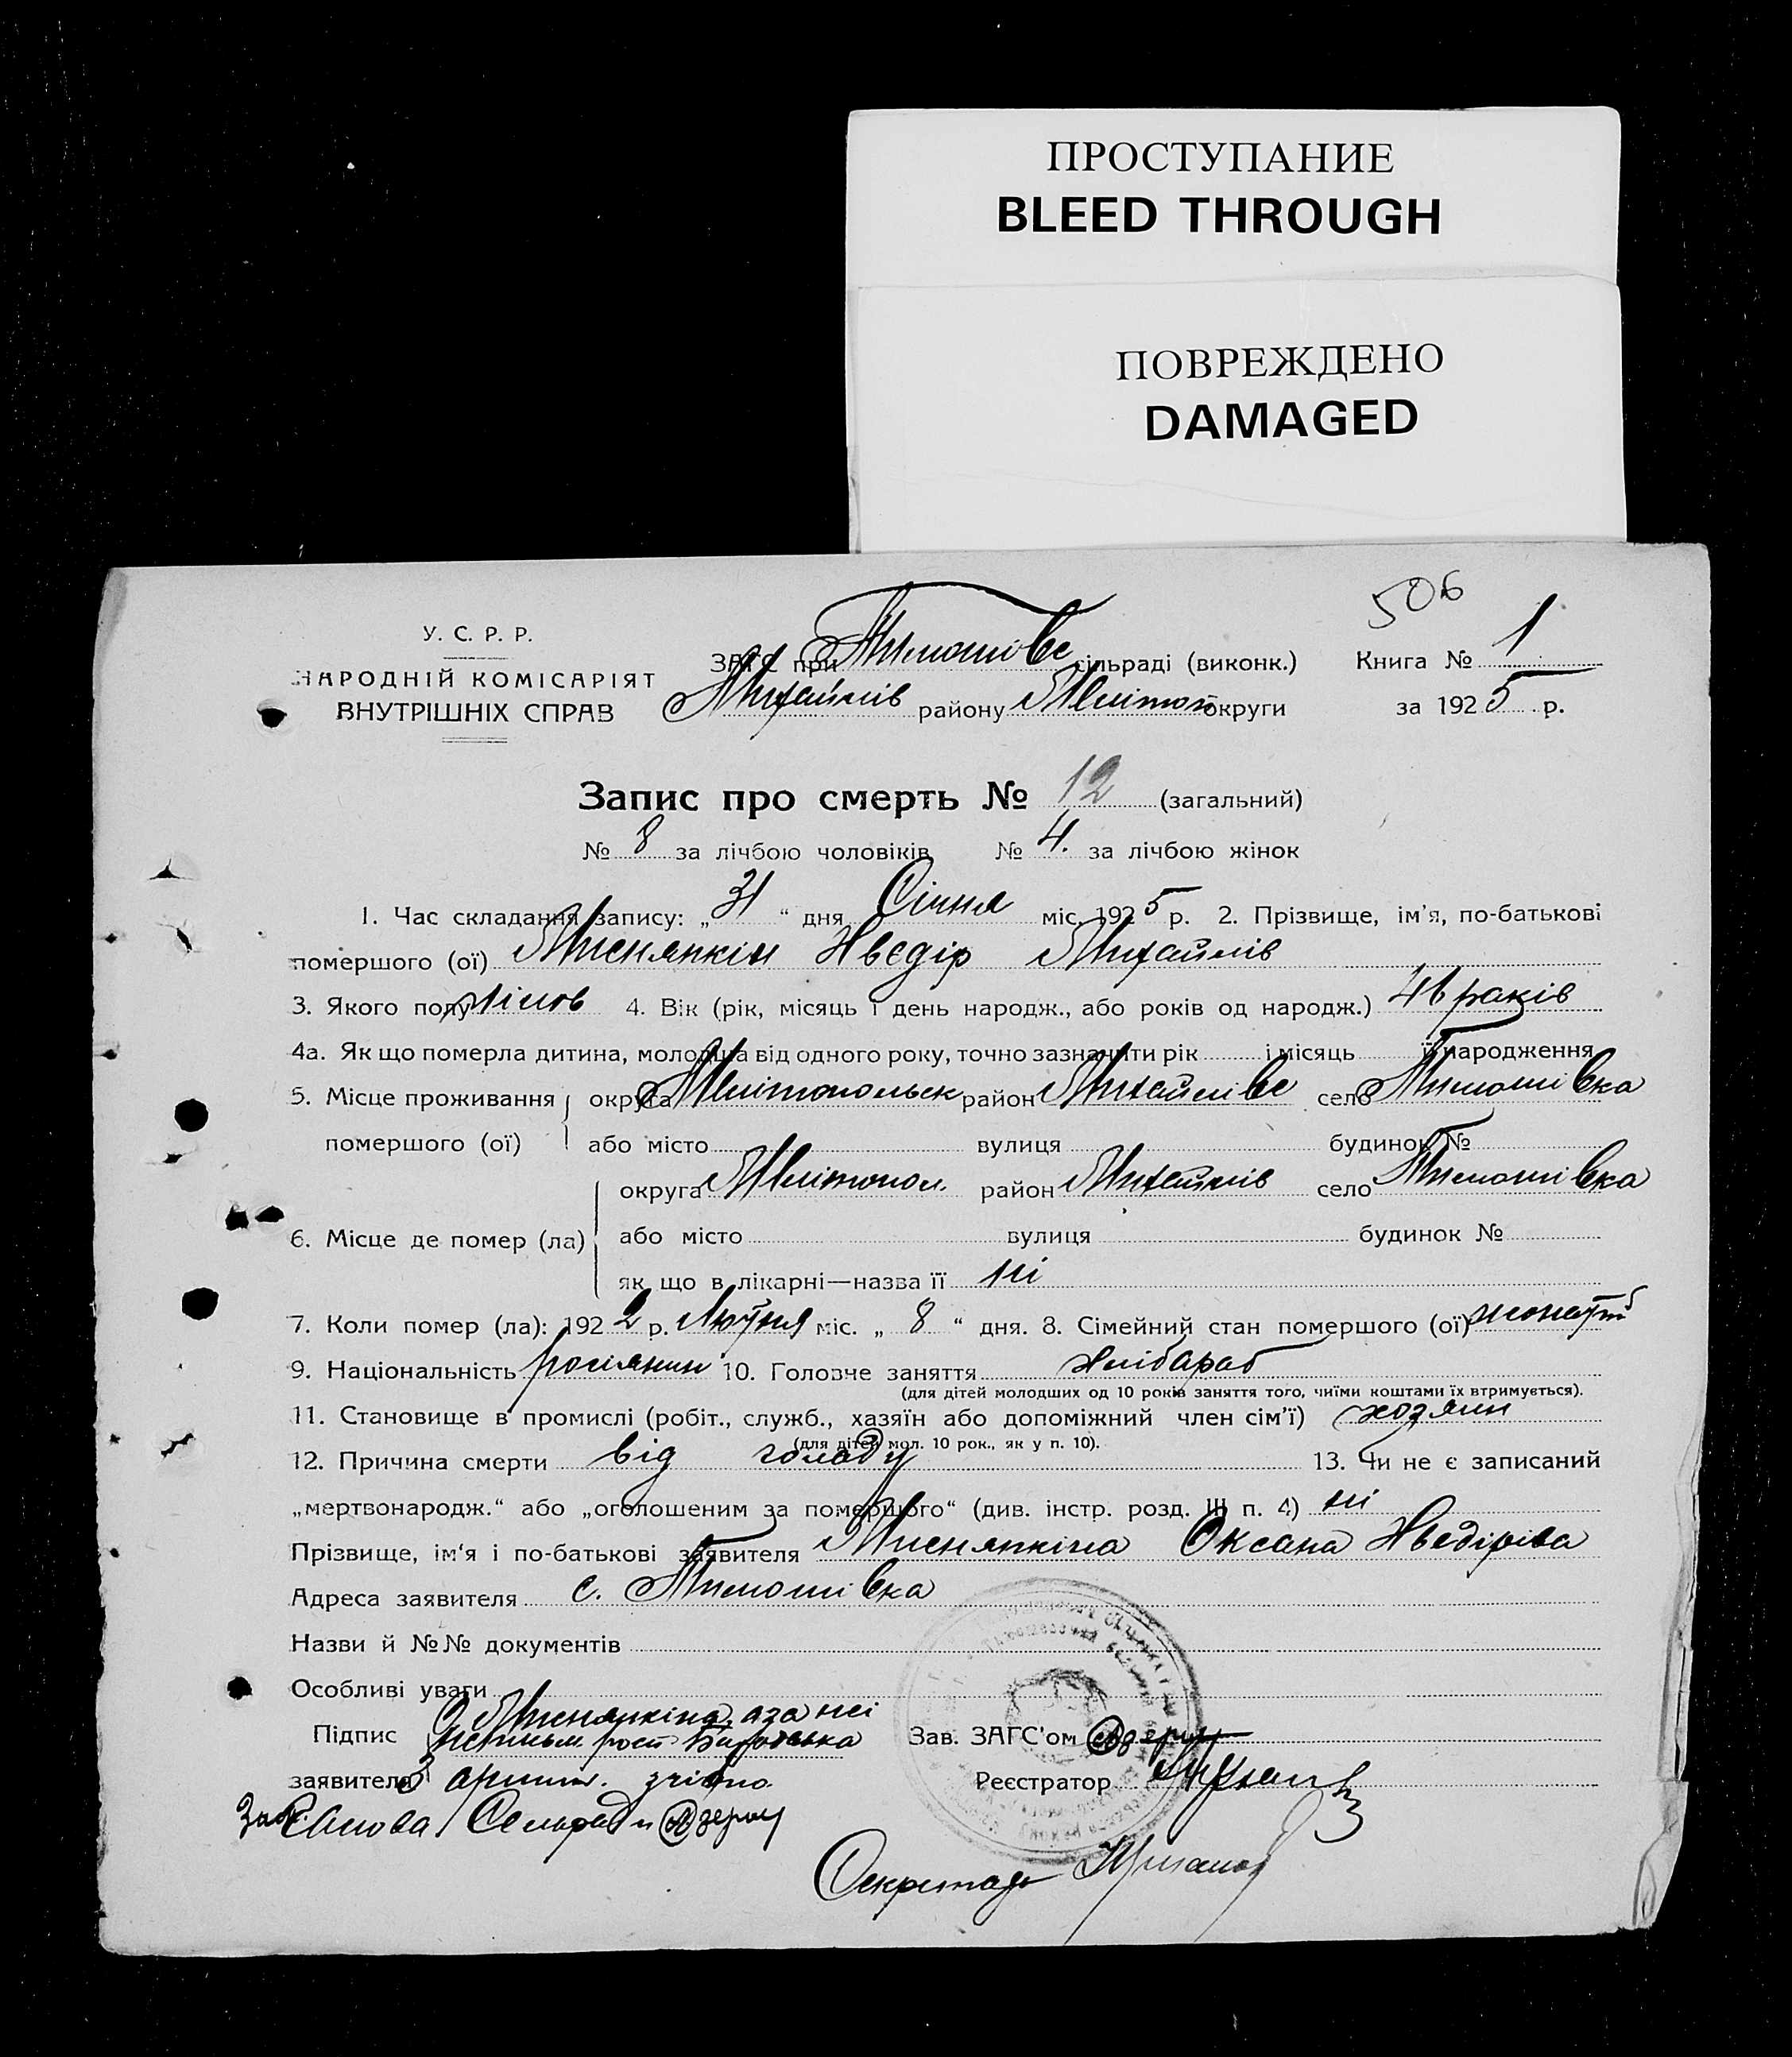 ПРОСТУПАНИЕ
BLEED THROUGH
ПОВРЕЖДЕНО
DAMAGED
506
У. С. Р. Р.
НАРОДНІЙ КОМІСАРІЯТ
ВНУТРІШНІХ СПРАВ
ЗАГС при Тимошівс сільраді (виконк.) Книга № 1
Михайлів району Меліtoп округи за 1925 р.
Запис про смерть № 12 (загальний)
№ 8 за лічбою чоловіків № 4. за лічбою жінок
1. Час складання запису: „31“ дня Січня міс. 1925 р. 2. Прізвище, ім'я, по-батькові
помершого (ої) Хведір Михайлів
3. Якого полу 4. Вік (рік, місяць і день народж., або років од народж.) років
4а. Як що померла дитина, молодша від одного року, точно зазначити рік і місяць її народження
5. Місце проживання округа Мелітопольск район Михайлівс село Тимошівка
помершого (ої) або місто вулиця будинок №
округа Мелітопол. район Михайлів село Тимошівка
6. Місце де помер (ла) або місто вулиця будинок №
як що в лікарні—назва її ні
7. Коли помер (ла): 1922 р. міс. „8“ дня. 8. Сімейний стан помершого (ої) жонат
9. Національність росіянин 10. Головче заняття хліб
(для дітей молодших од 10 років заняття того, чиїми коштами їх втримується).
11. Становище в промислі (робіт., служб., хазяїн або допоміжний член сім'ї) хозяин
(для дітей мол. 10 рок., як у п. 10).
12. Причина смерти від голоду 13. Чи не є записаний
„мертвонародж.“ або „оголошеним за помершого“ (див. інстр. розд. III п. 4) ні
Прізвище, ім'я і по-батькові заявителя Оксана Хведірівa
Адреса заявителя с. Тимошівка
Назви й №№ документів
Особливі уваги
а за неї
Підпис Зав. ЗАГС'ом
заявителя Реєстратор
Голова Сельради
Секретарь